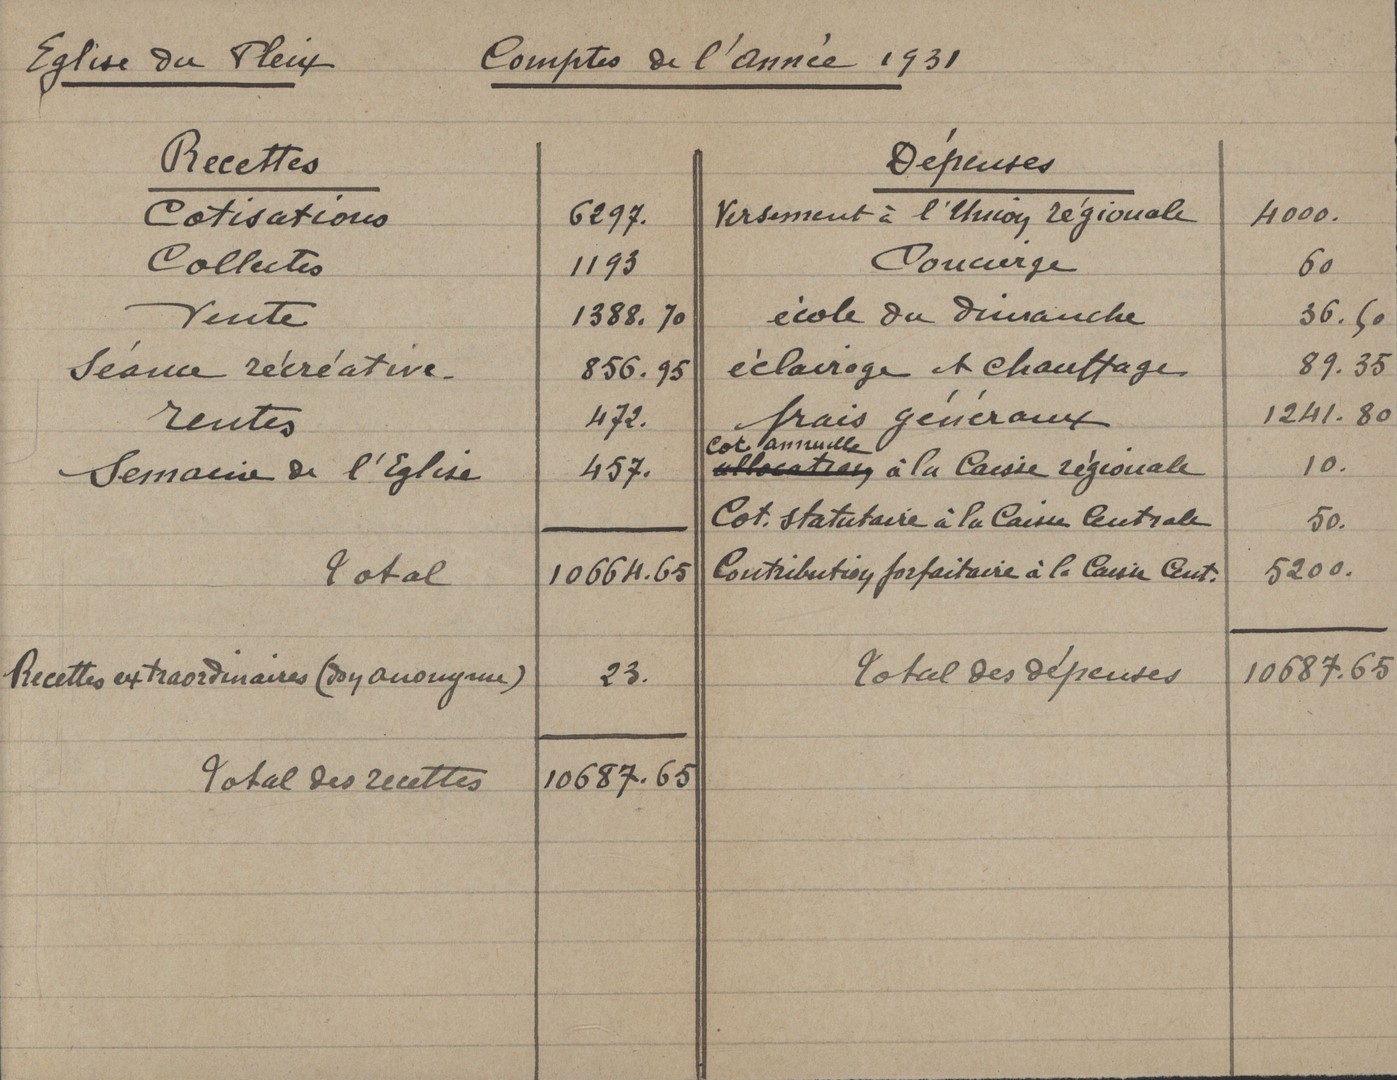 Eglise du Fleix Comptes de l'année 1931
Recettes
Cotisations 6297.
Collectes 1193
Vente 1388.70
Séance récréative 856.95
rentes 472.
Semaine de l'Eglise 457.
Total 10664.65
Recettes extraordinaires (don anonyme) 23.
Total des recettes 10687.65
Dépenses
Versement à l'Union régionale 4000.
Concierge 60
école du dimanche 36.50
éclairage et chauffage 89.35
frais généraux 1241.80
cot. annuelle
allocation à la Caisse régionale 10.
Cot. statutaire à la Caisse Centrale 50.
Contribution forfaitaire à la Caisse Cent. 5200.
Total des dépenses 10687.65